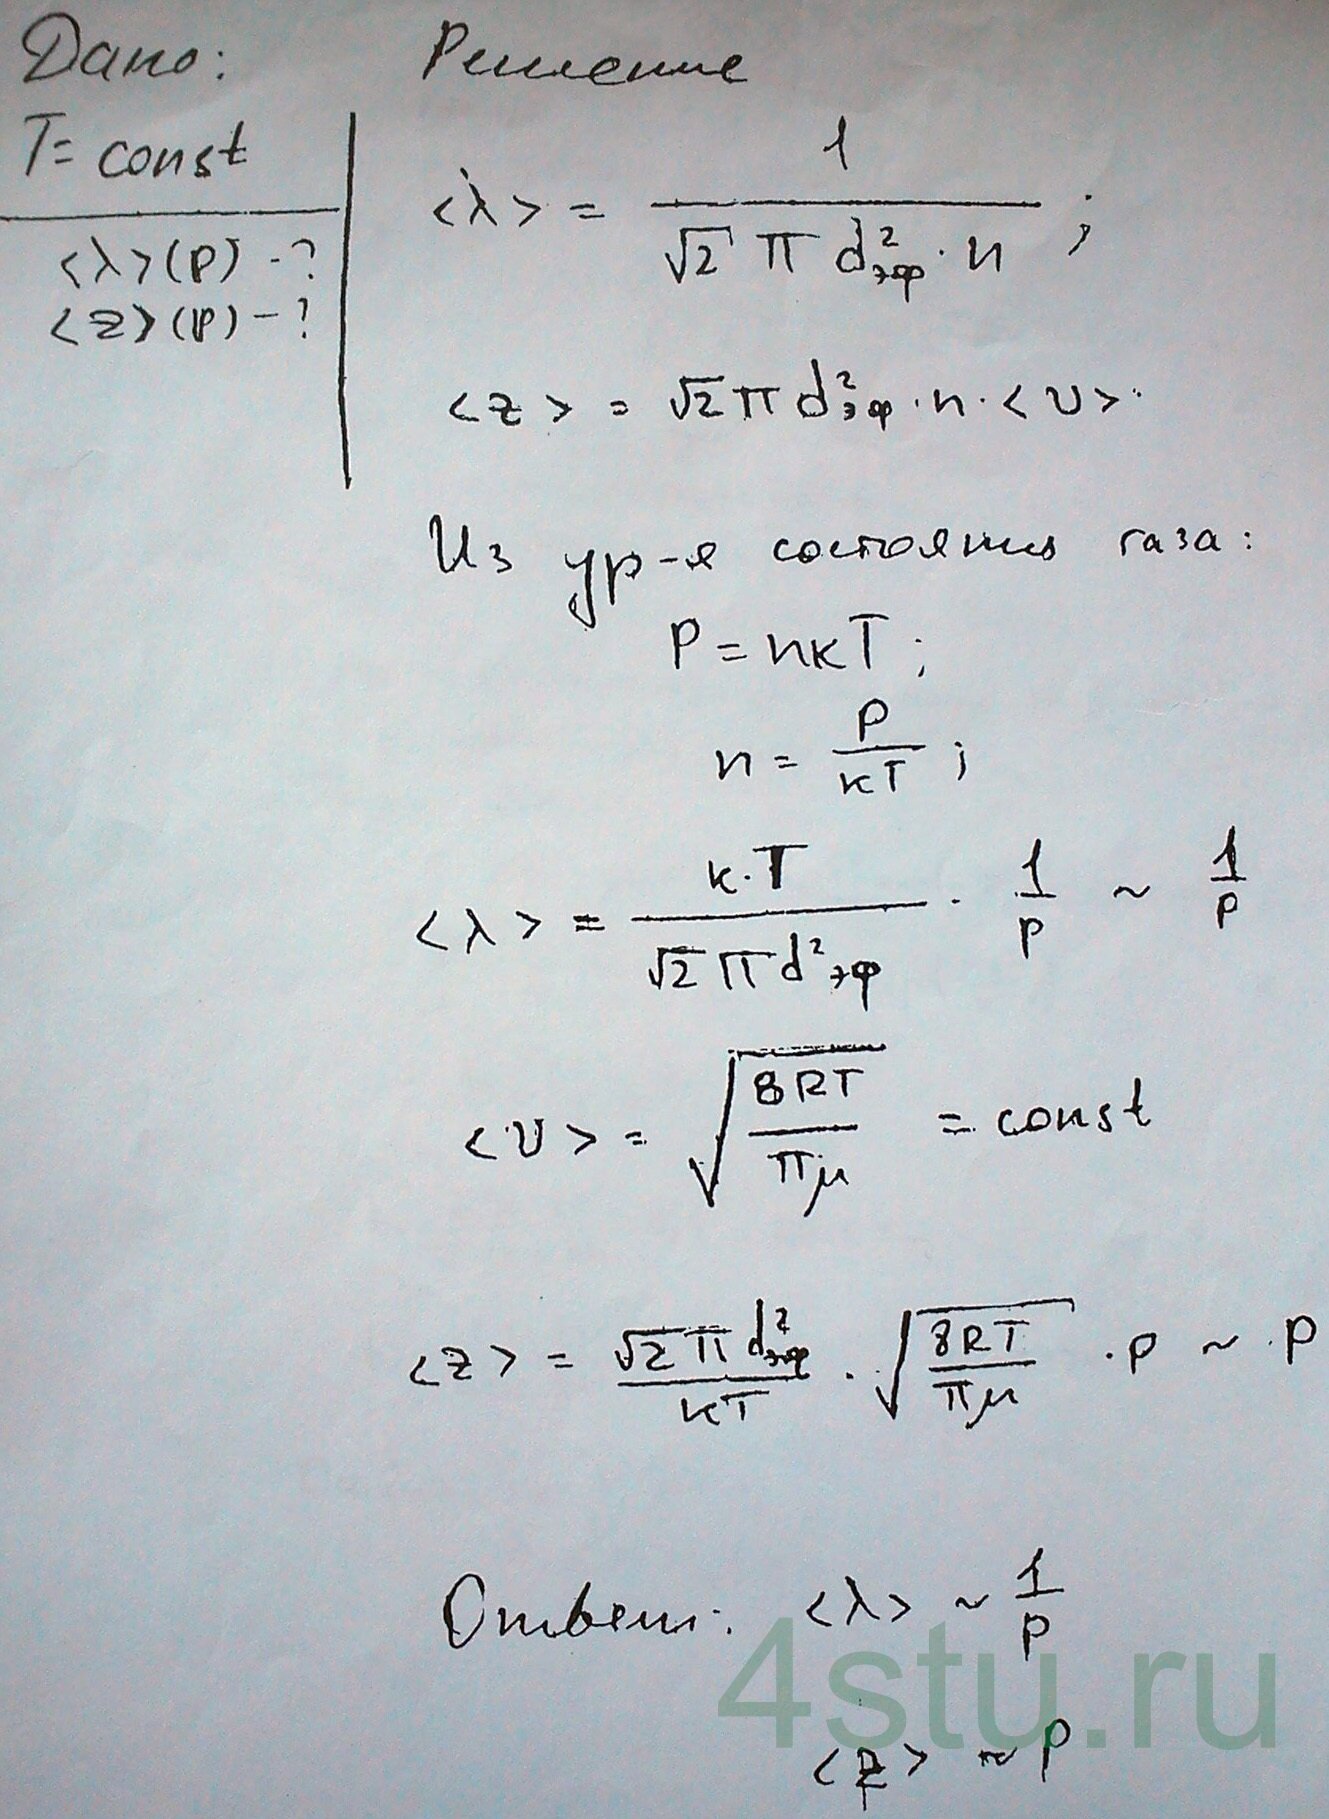 Дано:
T = const
<λ>(p) - ?
<z>(p) - ?
Решение
<λ> = 1 / (√2 π d²эф · n) ;
<z> = √2 π d²эф · n · <υ>.
Из ур-я состояния газа:
P = nкT ;
n = P / кT ;
<λ> = к·T / (√2 π d²эф) · 1/P ~ 1/P
<υ> = √(8RT / πμ) = const
<z> = √2 π d²эф / кT · √(8RT / πμ) · p ~ p
Ответ: <λ> ~ 1/p
<z> ~ p
4stu.ru